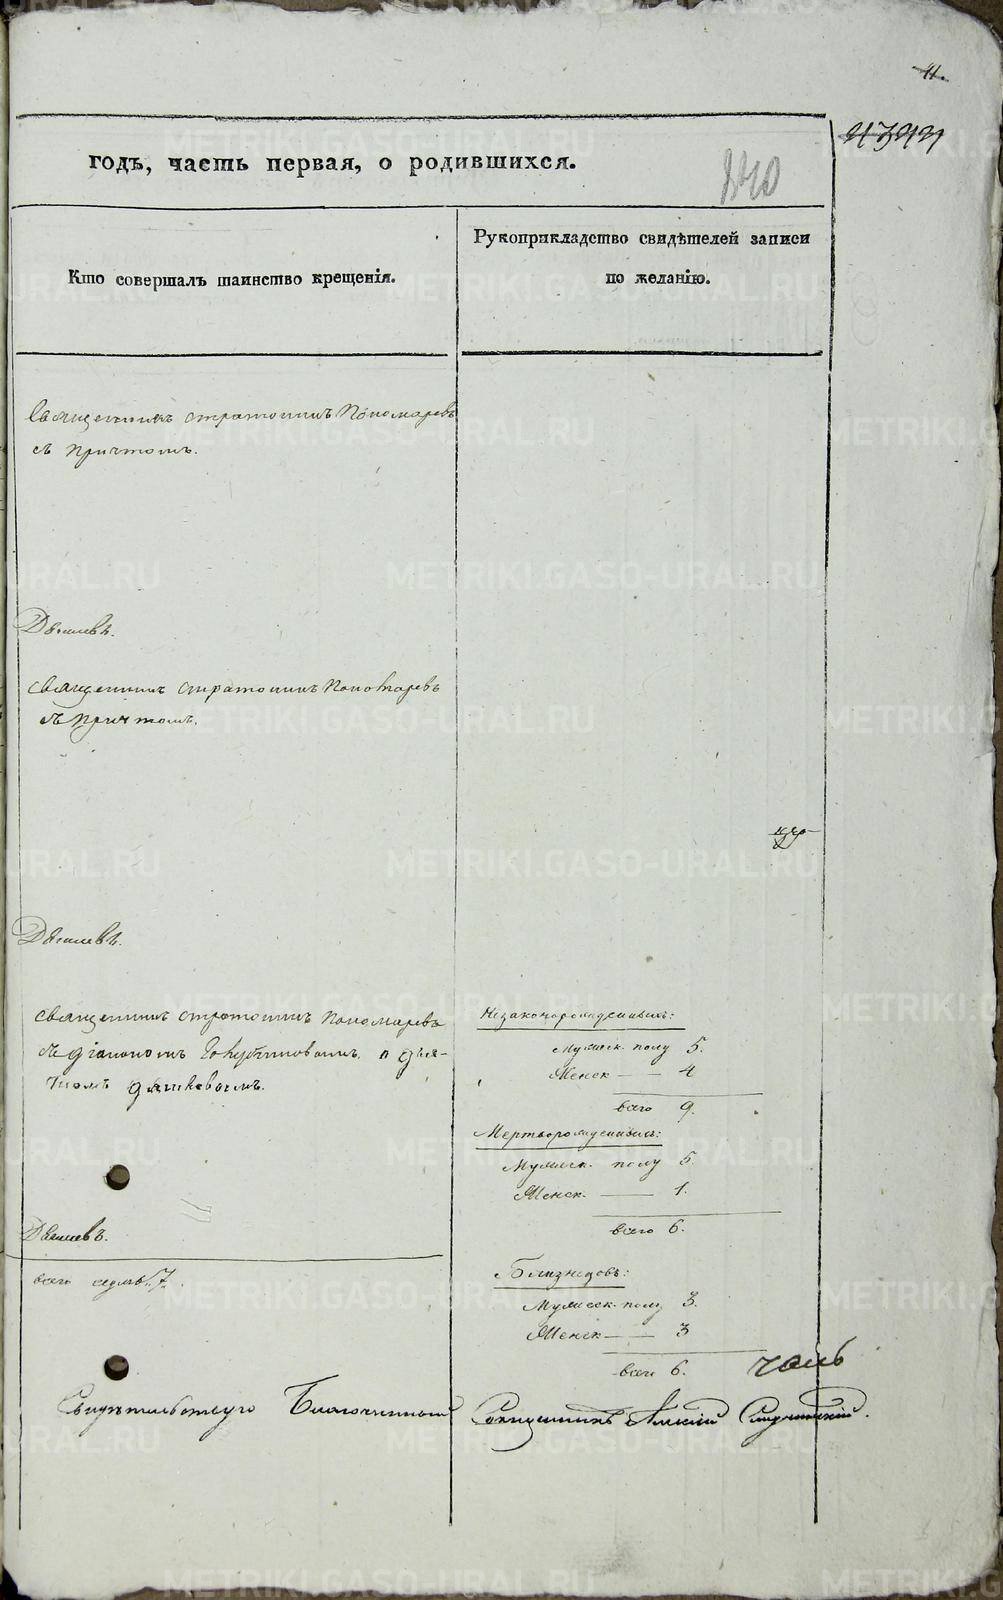 11.
годъ, часть первая, о родившихся.
240
Кто совершалъ таинство крещенія.
Рукоприкладство свидѣтелей записи
по желанію.
Священникъ Стратоникъ Пономаревъ
съ причтомъ.
Священникъ Стратоникъ Пономаревъ
съ причтомъ.
Священникъ Стратоникъ Пономаревъ
съ діакономъ и дья-
чкомъ
Незаконорожденныхъ:
Мужеск. полу 5.
Женск — — 4
всего 9.
Мертворожденныхъ:
Мужеск. полу 5.
Женск. — 1.
всего 6.
всего 7.
Близнецовъ:
Мужеск. полу 3.
Женск — — 3
всего 6.
Свидѣтельствую Благочинный Священникъ Алексій
METRIKI.GASO-URAL.RU